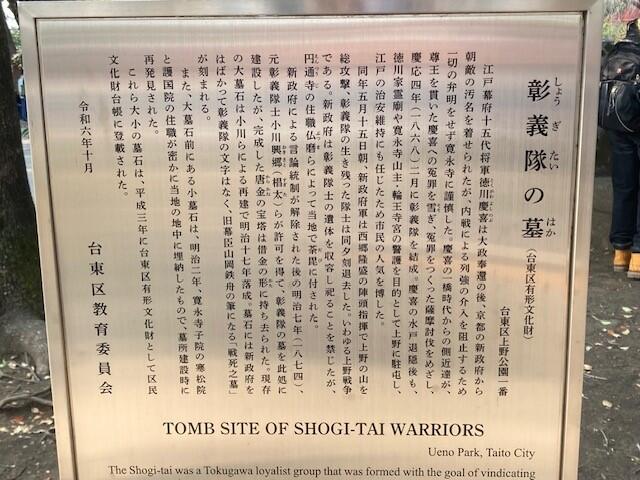 彰義隊の墓（台東区有形文化財）
しょうぎたい はか
台東区上野公園一番
江戸幕府十五代将軍徳川慶喜は大政奉還の後、京都の新政府から
朝敵の汚名を着せられたが、内戦による列強の介入を阻止するため
一切の弁明をせず寛永寺に謹慎した。慶喜の一橋時代からの側近達が、
尊王を貫いた慶喜への冤罪を雪ぎ、冤罪をつくった薩摩討伐をめざし、
慶応四年（一八六八）二月に彰義隊を結成。慶喜の水戸退隠後も、
徳川家霊廟や寛永寺山主・輪王寺宮の警護を目的として上野に駐屯し、
江戸の治安維持にも任じたため市民の人気を博した。
同年五月十五日朝、新政府軍は西郷隆盛の陣頭指揮で上野の山を
総攻撃、彰義隊の生き残った隊士は同夕刻退去した。いわゆる上野戦争
である。新政府は彰義隊士の遺体を収容し祀ることを禁じたが、
円通寺の住職仏磨らによって当地で荼毘に付された。
新政府による言論統制が解除された後の明治七年（一八七四）、
元彰義隊士小川興郷（椙太）らが許可を得て、彰義隊の墓を此処に
建設したが、完成した唐金の宝塔は借金の形に持ち去られた。現存
の大墓石は小川らによる再建で明治十七年落成。墓石には新政府を
はばかって彰義隊の文字はなく、旧幕臣山岡鉄舟の筆になる「戦死之墓」
が刻まれる。
また、大墓石前にある小墓石は、明治二年、寛永寺子院の寒松院
と護国院の住職が密かに当地の地中に埋納したもので、墓所建設時に
再発見された。
これら大小の墓石は、平成三年に台東区有形文化財として区民
文化財台帳に登載された。
令和六年十月
台東区教育委員会
TOMB SITE OF SHOGI-TAI WARRIORS
Ueno Park, Taito City
The Shogi-tai was a Tokugawa loyalist group that was formed with the goal of vindicating